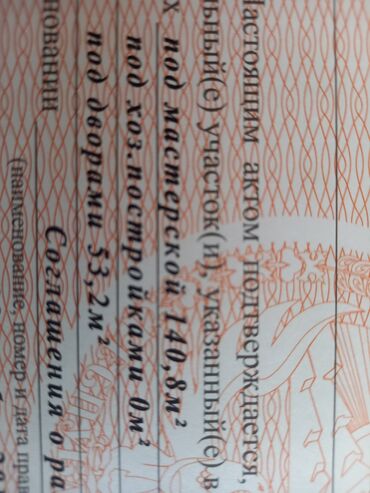 Настоящим актом подтверждается,
льный(е) участок(и), указанный(е) в
х, под мастерской 140,8м²
под хоз.постройками 0м²
под дворами 53,2м²
новании
Соглашения о ра
(наименование, номер и дата прав